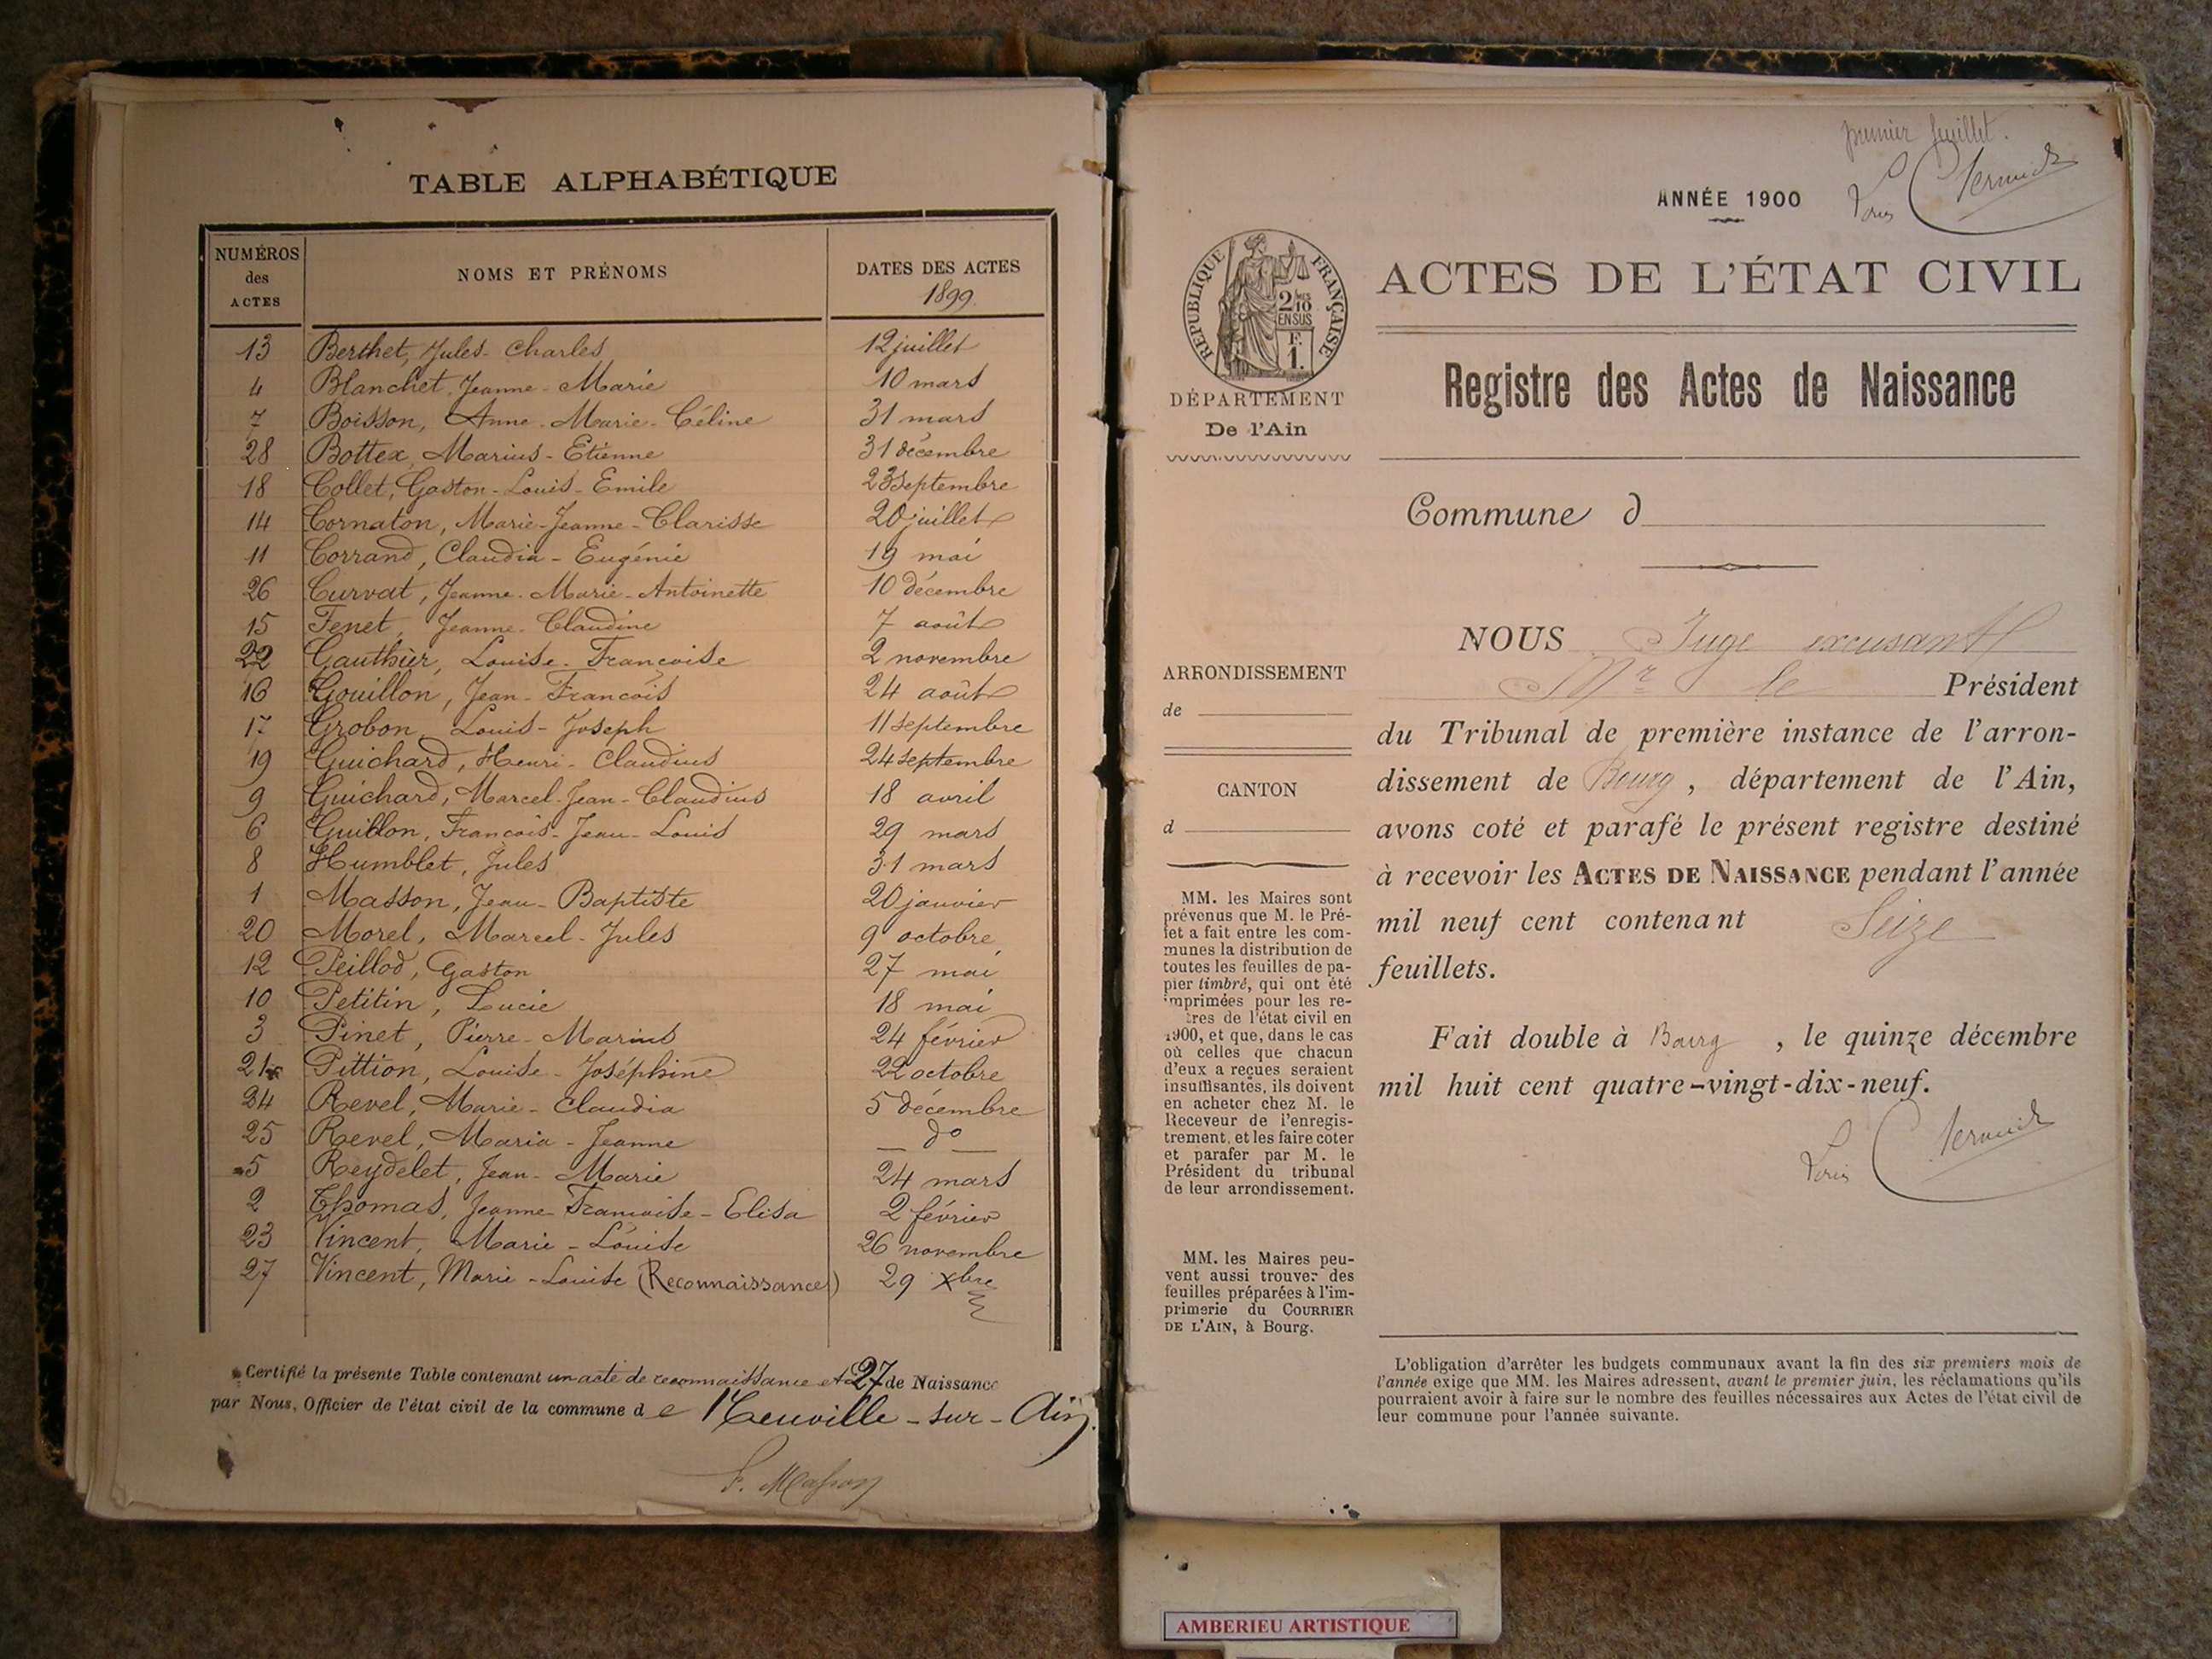 TABLE ALPHABÉTIQUE
NUMÉROS des ACTES NOMS ET PRÉNOMS DATES DES ACTES 1899
13 Berthet, Jules-Charles 12 juillet
4 Blanchet, Jeanne-Marie 10 mars
7 Boisson, Anne-Marie-Céline 31 mars
28 Bottex, Marius-Etienne 31 décembre
18 Collet, Gaston-Louis-Emile 23 septembre
14 Cornaton, Marie-Jeanne-Clarisse 20 juillet
11 Corrand, Claudia-Eugénie 19 mai
26 Curvat, Jeanne-Marie-Antoinette 10 décembre
15 Fenet, Jeanne-Claudine 7 août
22 Gauthier, Louise-Françoise 2 novembre
16 Gouillon, Jean-François 24 août
17 Grobon, Louis-Joseph 11 septembre
19 Guichard, Henri-Claudius 24 septembre
9 Guichard, Marcel-Jean-Claudius 18 avril
6 Guillon, François-Jean-Louis 29 mars
8 Humblet, Jules 31 mars
1 Masson, Jean-Baptiste 20 janvier
20 Morel, Marcel-Jules 9 octobre
12 Peillod, Gaston 27 mai
10 Petitin, Lucie 18 mai
3 Pinet, Pierre-Marius 24 février
21 Pittion, Louise-Joséphine 22 octobre
24 Revel, Marie-Claudia 5 décembre
25 Revel, Maria-Jeanne do
5 Reydelet, Jean-Marie 24 mars
2 Thomas, Jeanne-Françoise-Elisa 2 février
23 Vincent, Marie-Louise 26 novembre
27 Vincent, Marie-Louise (Reconnaissance) 29 xbre
Certifié la présente Table contenant un acte de reconnaissance et 27 de Naissance
par Nous, Officier de l'état civil de la commune de Neuville-sur-Ain.
F. Masson
premier feuillet.
ANNÉE 1900
RÉPUBLIQUE FRANÇAISE
2/10
EN SUS
F.
1.
DÉPARTEMENT
De l'Ain
ACTES DE L'ÉTAT CIVIL
Registre des Actes de Naissance
Commune d
ARRONDISSEMENT
de
CANTON
d
MM. les Maires sont
prévenus que M. le Pré-
fet a fait entre les com-
munes la distribution de
toutes les feuilles de pa-
pier timbré, qui ont été
imprimées pour les re-
tres de l'état civil en
1900, et que, dans le cas
où celles que chacun
d'eux a reçues seraient
insuffisantes, ils doivent
en acheter chez M. le
Receveur de l'enregis-
trement, et les faire coter
et parafer par M. le
Président du tribunal
de leur arrondissement.
MM. les Maires peu-
vent aussi trouver des
feuilles préparées à l'im-
primerie du COURRIER
DE L'AIN, à Bourg.
NOUS Juge excusant
Mr le Président
du Tribunal de première instance de l'arron-
dissement de Bourg, département de l'Ain,
avons coté et parafé le présent registre destiné
à recevoir les ACTES DE NAISSANCE pendant l'année
mil neuf cent contenant Seize
feuillets.
Fait double à Bourg, le quinze décembre
mil huit cent quatre-vingt-dix-neuf.
L'obligation d'arrêter les budgets communaux avant la fin des six premiers mois de
l'année exige que MM. les Maires adressent, avant le premier juin, les réclamations qu'ils
pourraient avoir à faire sur le nombre des feuilles nécessaires aux Actes de l'état civil de
leur commune pour l'année suivante.
AMBERIEU ARTISTIQUE